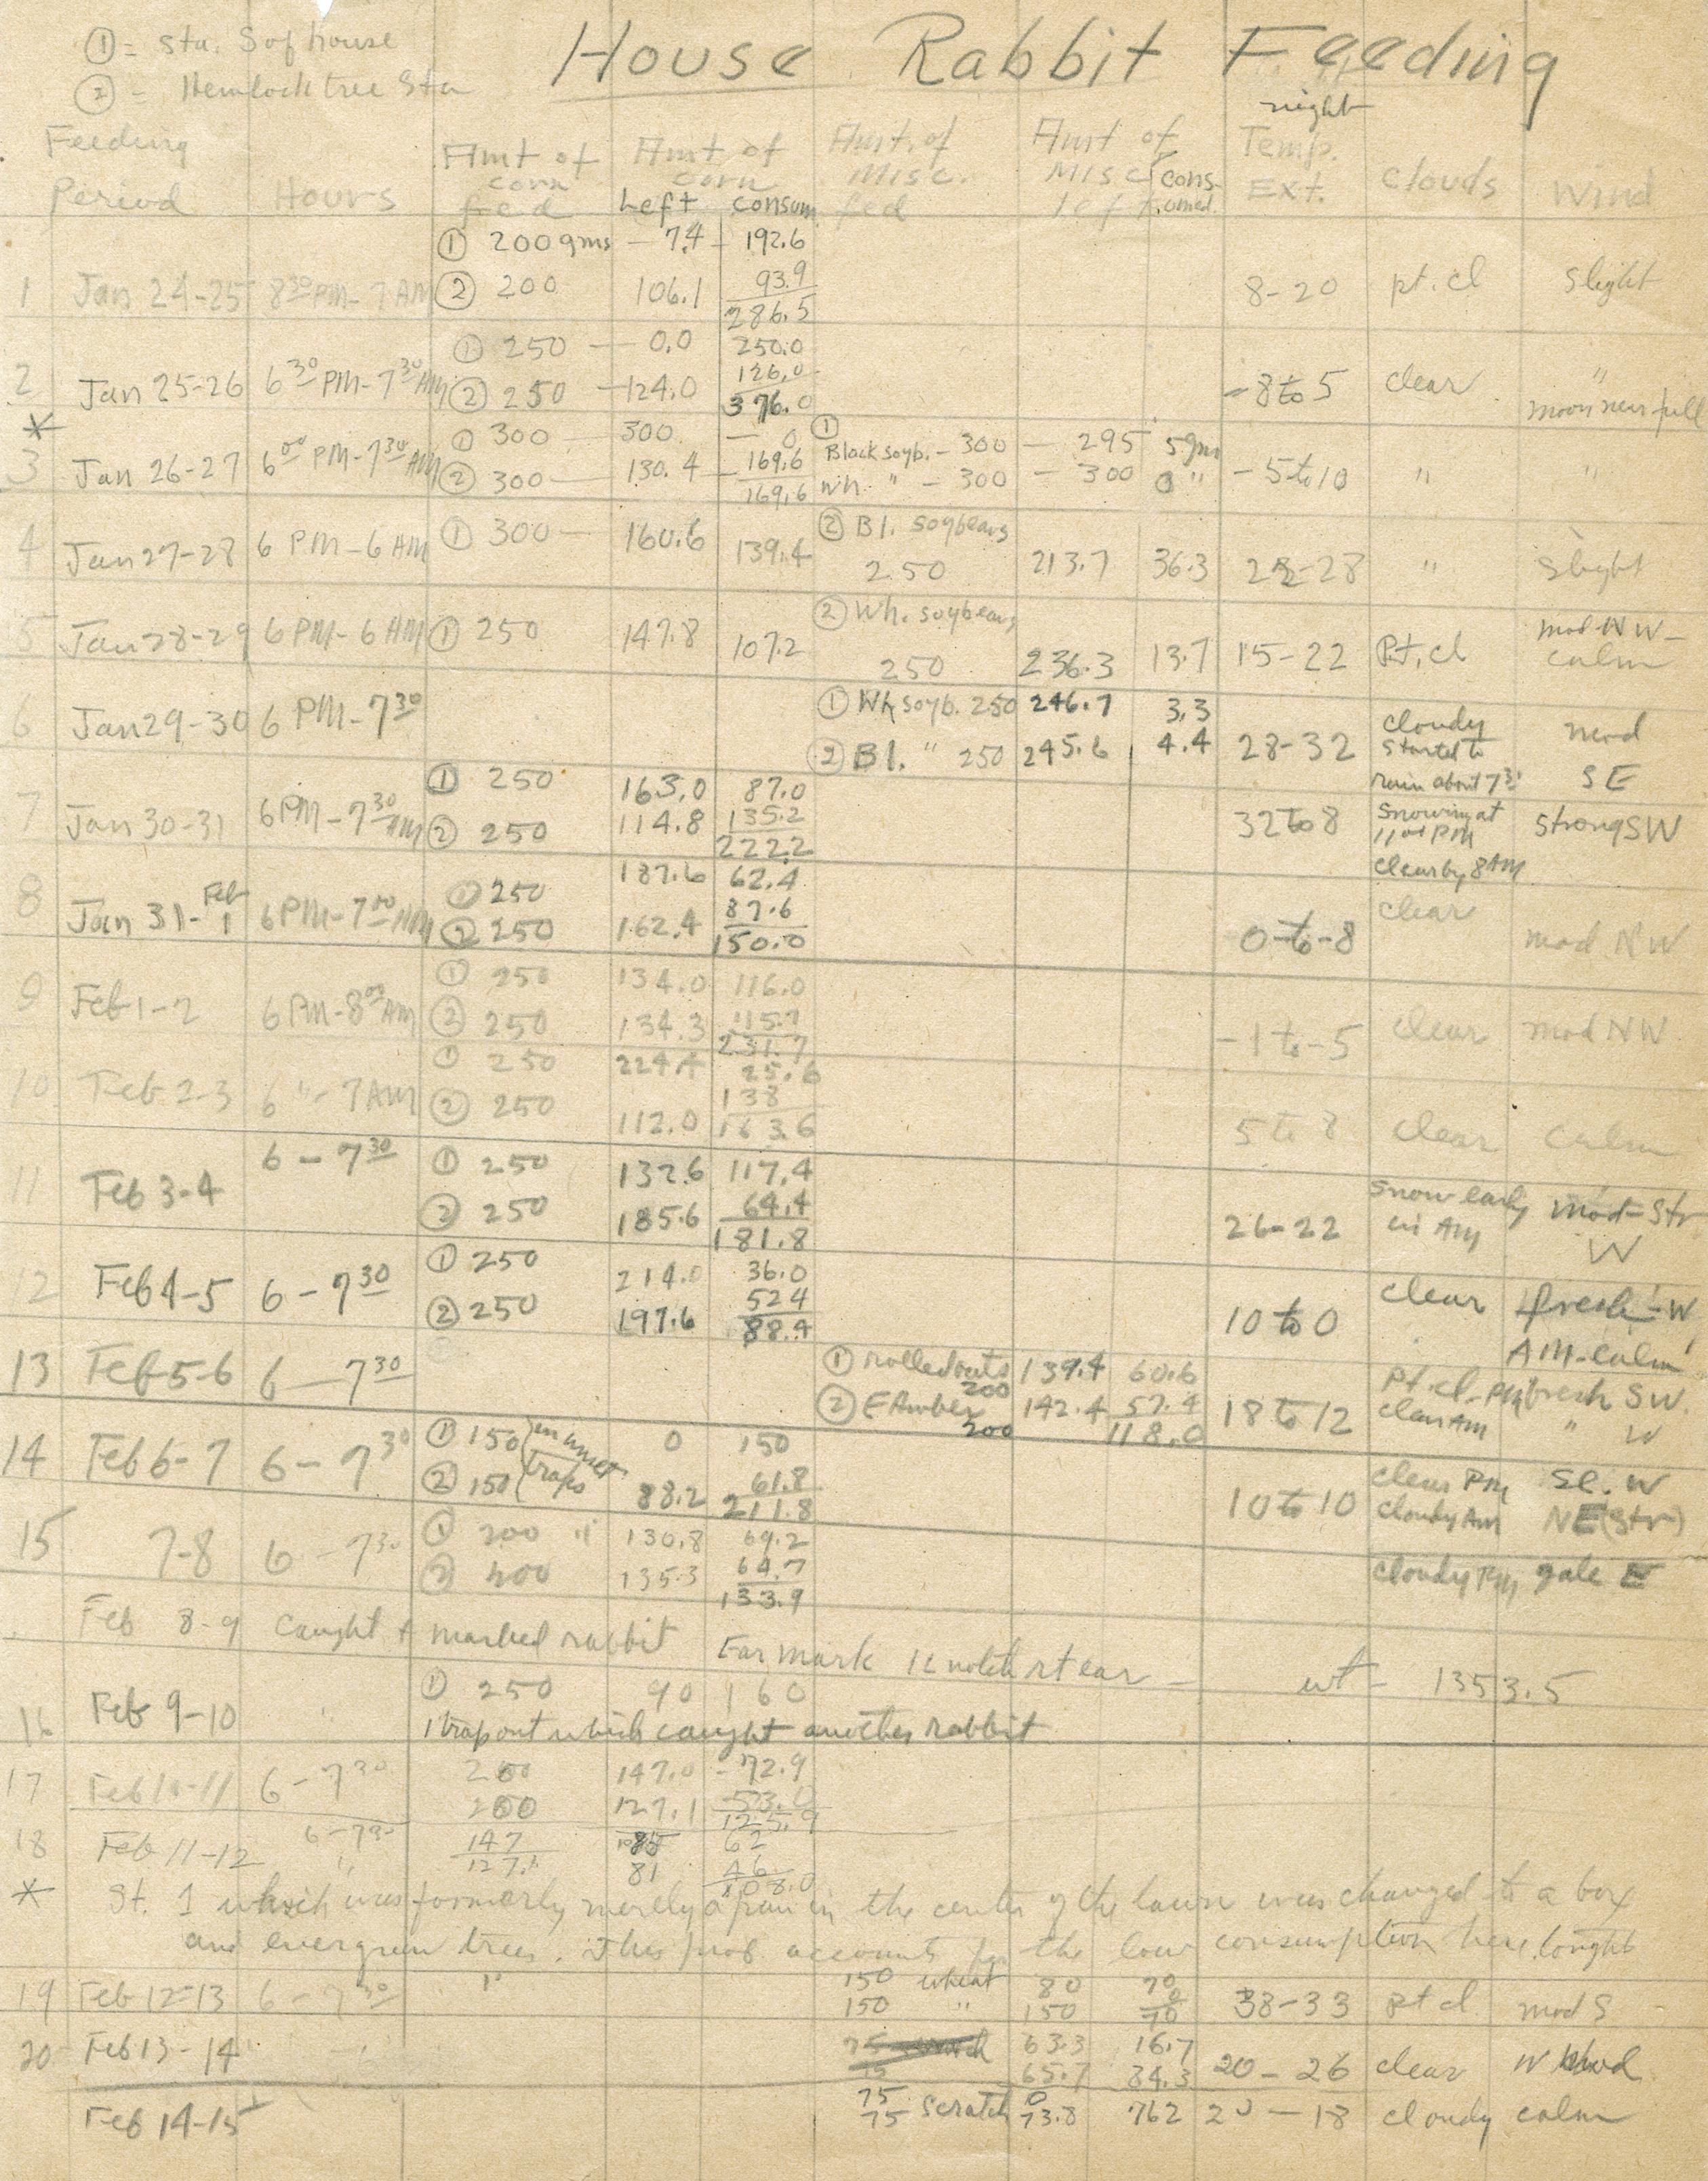 ① = Sta. S of house
② = Hemlock tree Sta
House Rabbit Feeding
Feeding Period Hours Amt of corn fed Amt of corn Left consum Amt. of Misc. fed Amt of Misc left consumed night Temp. Ext. Clouds Wind
① 200 gms — 7.4 192.6
1 Jan 24-25 8 30 PM - 7 AM ② 200 106.1 93.9 8-20 pt. cl Slight
286.5
① 250 — 0.0 250.0
2 Jan 25-26 6 30 PM - 7 30 AM ② 250 — 124.0 126.0 -8 to 5 clear "
376.0 moon near full
* ① 300 — 300 — 0 ① Black soyb. - 300 — 295 5 gm
3 Jan 26-27 6 00 PM - 7 30 AM ② 300 — 130.4 — 169.6 Wh. " - 300 — 300 0 " -5 to 10 " "
169.6
4 Jan 27-28 6 PM - 6 AM ① 300 — 160.6 139.4 ② Bl. soybeans
250 213.7 36.3 28 " Slight
5 Jan 28-29 6 PM - 6 AM ① 250 147.8 107.2 ② Wh. soybeans mod NW -
250 236.3 13.7 15-22 Pt. cl calm
6 Jan 29-30 6 PM - 7 30 ① Wh soyb. 250 246.7 3.3 cloudy mod
② Bl. " 250 245.6 4.4 28-32 started to SE
rain about 7 30
① 250 163.0 87.0
7 Jan 30-31 6 PM - 7 30 AM ② 250 114.8 135.2 32 to 8 Snowing at 11 00 PM Strong SW
222.2 clear by 8 AM
① 250 187.6 62.4 clear
8 Jan 31 - Feb 1 6 PM - 7 00 AM ② 250 162.4 87.6 0 to -8 mod NW
150.0
① 250 134.0 116.0
9 Feb 1-2 6 PM - 8 00 AM ② 250 134.3 115.7 -1 to -5 clear mod NW
231.7
① 250 224.4 25.6
10 Feb 2-3 6 " - 7 AM ② 250 112.0 138 5 to 8 clear calm
163.6
6 - 7 30 ① 250 132.6 117.4 Snow early
11 Feb 3-4 ② 250 185.6 64.4 26-22 in AM mod - Str
181.8 W
① 250 214.0 36.0 clear fresh - W
12 Feb 4-5 6 - 7 30 ② 250 197.6 52.4 10 to 0
88.4 AM - calm
13 Feb 5-6 6 — 7 30 ① rolled oats 200 139.4 60.6 pt. cl. - PM fresh SW.
② E Amber 200 142.4 57.4 18 to 12 clear AM " W
118.0
① 150 (in unset 0 150 clear PM Sl. W
14 Feb 6-7 6 - 7 30 ② 150 (traps 88.2 61.8 10 to 10 cloudy AM NE (Str)
211.8
① 200 " 130.8 69.2
15 7-8 6 - 7 30 ② 200 135.3 64.7 cloudy PM gale E
133.9
Feb 8-9 Caught + marked rabbit Ear mark notch rt ear — wt - 1353.5
① 250 90 160
16 Feb 9-10 " 1 trap out which caught another rabbit
17 Feb 10-11 6 - 7 30 200 147.0 - 72.9
200 127.1 53.0
125.9
18 Feb 11-12 6 - 7 30 147 85 62
" 127.1 81 46
108.0
* St. 1 which was formerly merely a pan in the center of the lawn was changed to a box
and evergreen trees. This prob. accounts for the low consumption here tonight
19 Feb 12-13 6 - 7 30 " 150 wheat 80 70
150 " 150 0 38-33 pt cl. mod S
70
20 Feb 13-14 " 63.3 16.7
65.7 84.3 20 - 26 clear W Mod
Feb 14-15 75 Scratch 0
75 73.8 76.2 20 — 18 cloudy calm